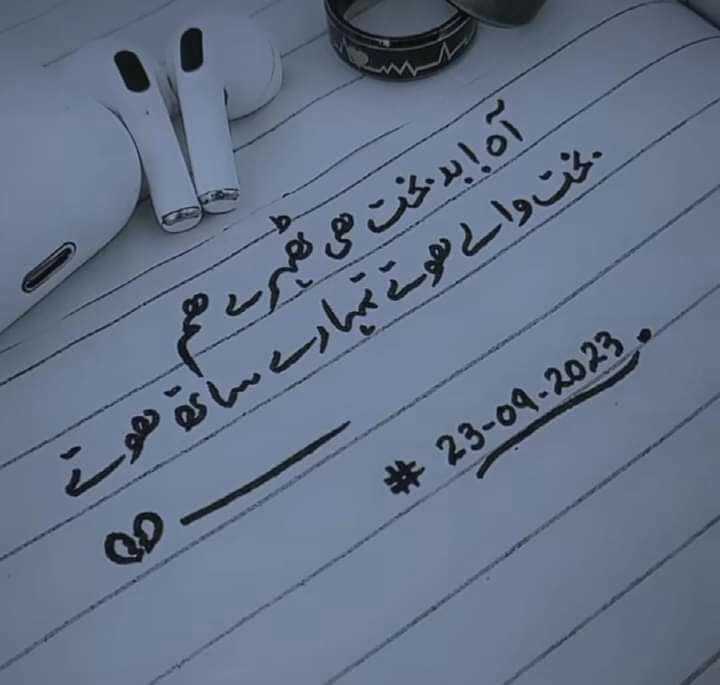 آہ! بدبخت ھی ٹھہرے ھم
بخت والے ھوتے تمہارے ساتھ ھوتے
# 23-09-2023.